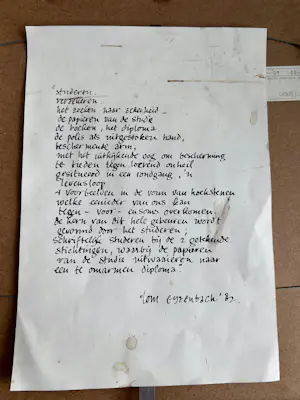 studeren.
verzekeren
het zoeken naar zekerheid.
de papieren van de studie
de boeken, het diploma
de polis als uitgestoken hand,
beschermende arm,
met het uitkijkende oog om bescherming
te bieden tegen loerend onheil
gesitueerd in een rondgang, 'n
levensloop
4 voorbeelden in de vorm van hoekstenen
welke eenieder van ons kan
tegen-voor-en soms overkomen.
de kern van dit hele gebeuren wordt
gevormd door het studeren;
schriftelijk studeren bij de 2 getekende
stichtingen, waarbij de papieren
van de studie uitwaaieren naar
een te omarmen diploma.
'82